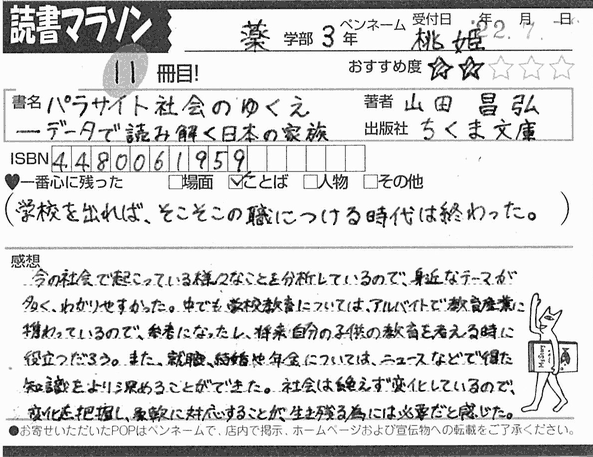 読書マラソン
薬 学部 3 年 ペンネーム 桃姫 受付日 '22.7. 年 月 日
11 冊目!
おすすめ度 ☆☆☆☆☆
書名 パラサイト社会のゆくえ
―データで読み解く日本の家族
著者 山田 昌弘
出版社 ちくま文庫
ISBN 4480061959
♥一番心に残った □場面 ☑ことば □人物 □その他
(学校を出れば、そこそこの職につける時代は終わった。)
感想
今の社会で起こっている様々なことを分析しているので、身近なテーマが
多く、わかりやすかった。中でも、学校教育については、アルバイトで教育産業に
携わっているので、参考になったし、将来自分の子供の教育を考える時に
役立つだろう。また、就職、結婚や年金については、ニュースなどで得た
知識をより深めることができた。社会は絶えず変化しているので、
変化を把握し、柔軟に対応することが、生き残る為には必要だと感じた。
●お寄せいただいたPOPはペンネームで、店内で掲示、ホームページおよび宣伝物への転載をご了承ください。